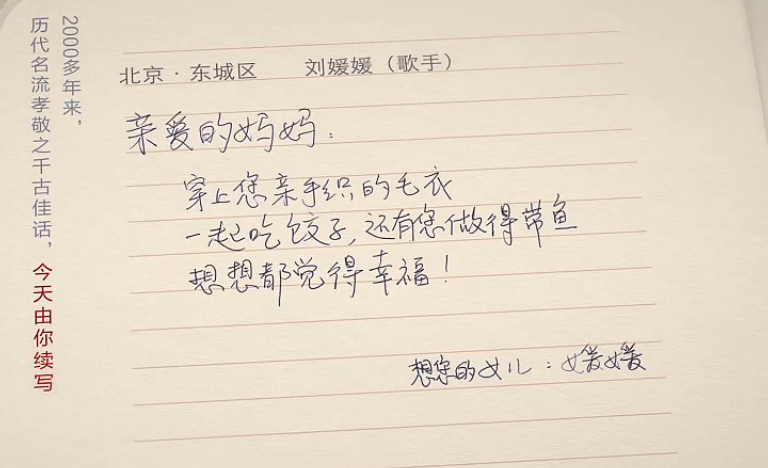 2000多年来，
历代名流孝敬之千古佳话，今天由你续写
北京·东城区 刘媛媛（歌手）
亲爱的妈妈：
穿上您亲手织的毛衣
一起吃饺子，还有您做得带鱼
想想都觉得幸福！
想您的女儿：媛媛